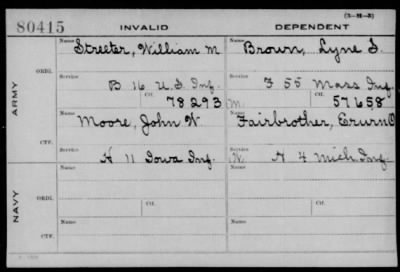 (3-M-3)
80415 INVALID DEPENDENT
Name Streeter, William M Name Brown, Lyne S.
ORIG.
Service Service
B 16 U.S. Inf. F 55 Mass Inf.
Ctf. 78293 M. Ctf. 57658
ARMY
Name Moore, John W Name Fairbrother,
CTF.
Service Service
H 11 Iowa Inf. W. A 4 Mich. Inf.
Name Name
ORIG.
Ctf. Ctf.
NAVY
Name Name
CTF.